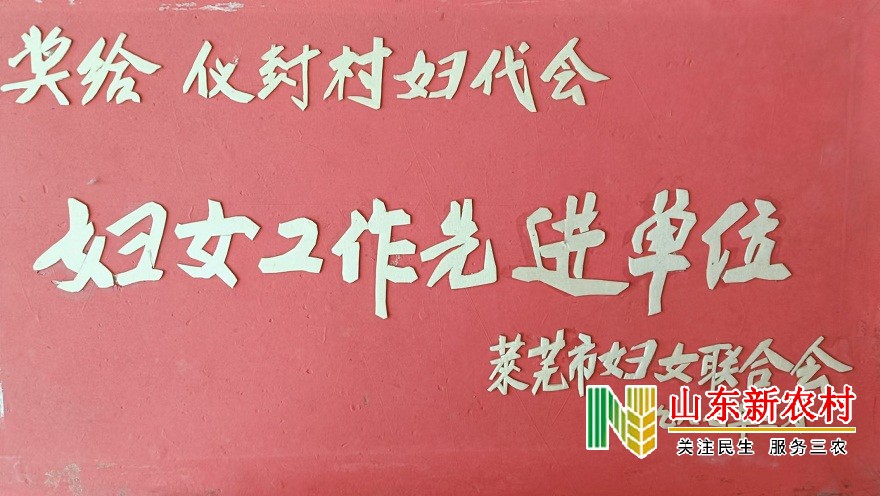 奖给 仪封村妇代会
妇女工作先进单位
莱芜市妇女联合会
山东新农村
关注民生 服务三农